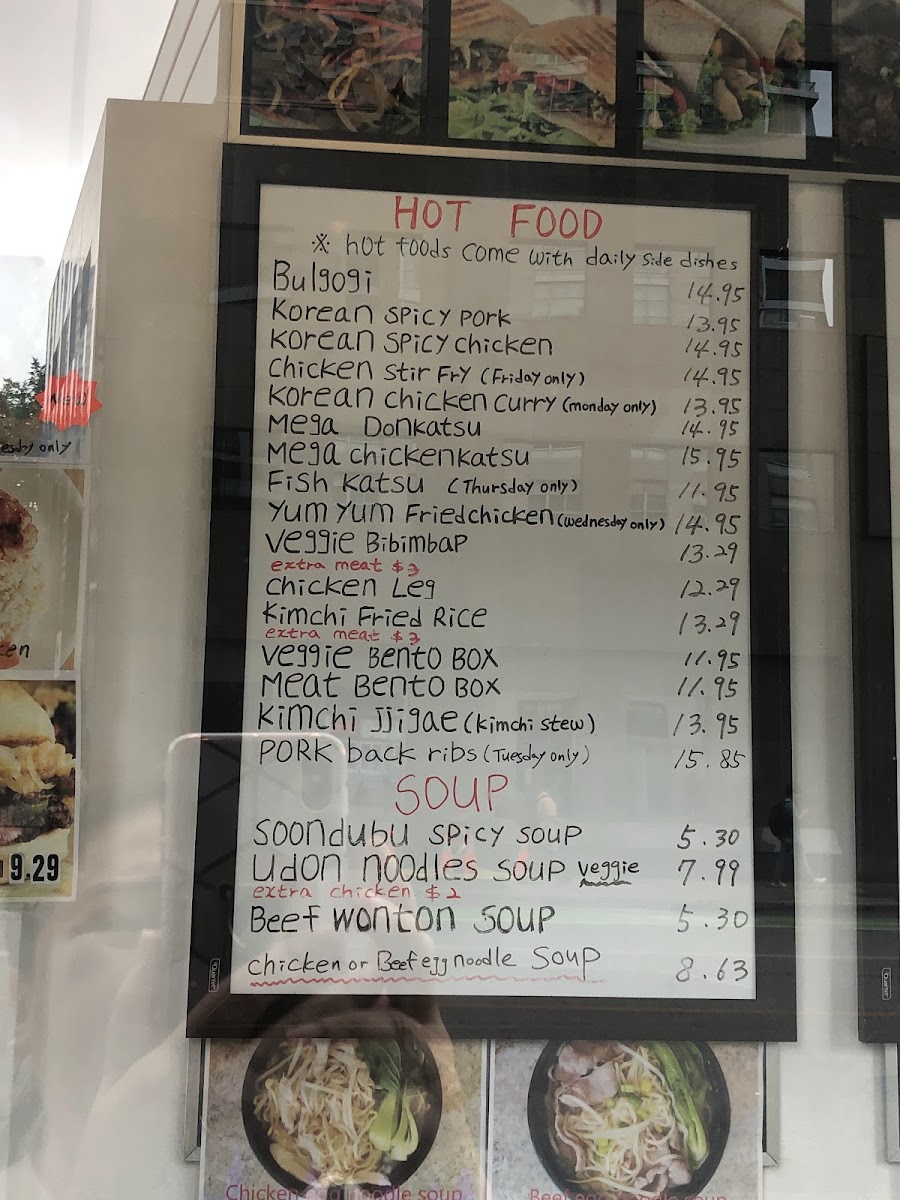 HOT FOOD
※ hot foods come with daily side dishes
Bulgogi 14.95
Korean spicy pork 13.95
Korean spicy chicken 14.95
Chicken Stir Fry (Friday only) 14.95
Korean chicken curry (monday only) 13.95
Mega Donkatsu 14.95
Mega chickenkatsu 15.95
Fish katsu (Thursday only) 11.95
Yum Yum Friedchicken (wednesday only) 14.95
Veggie Bibimbap 13.29
extra meat $3
chicken Leg 12.29
Kimchi Fried Rice 13.29
extra meat $3
Veggie Bento BOX 11.95
Meat Bento BOX 11.95
Kimchi JJigae (kimchi stew) 13.95
PORK back ribs (Tuesday only) 15.85
SOUP
Soondubu spicy soup 5.30
Udon noodles soup veggie 7.99
extra chicken $2
Beef wonton soup 5.30
chicken or Beef egg noodle Soup 8.63
NEW
esday only
ken
9.29
Quartet
Quartet
Chicken egg noodle soup
Beef egg noodle soup